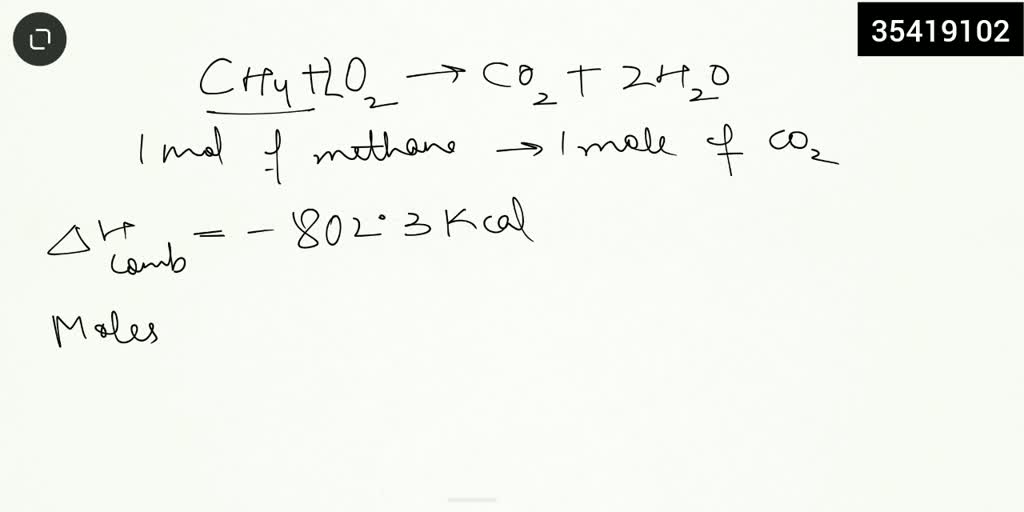 35419102
CH4 + 2O2 → CO2 + 2H2O
1 mol of methane → 1 mole of CO2
ΔH comb = - 802.3 Kcal
Moles